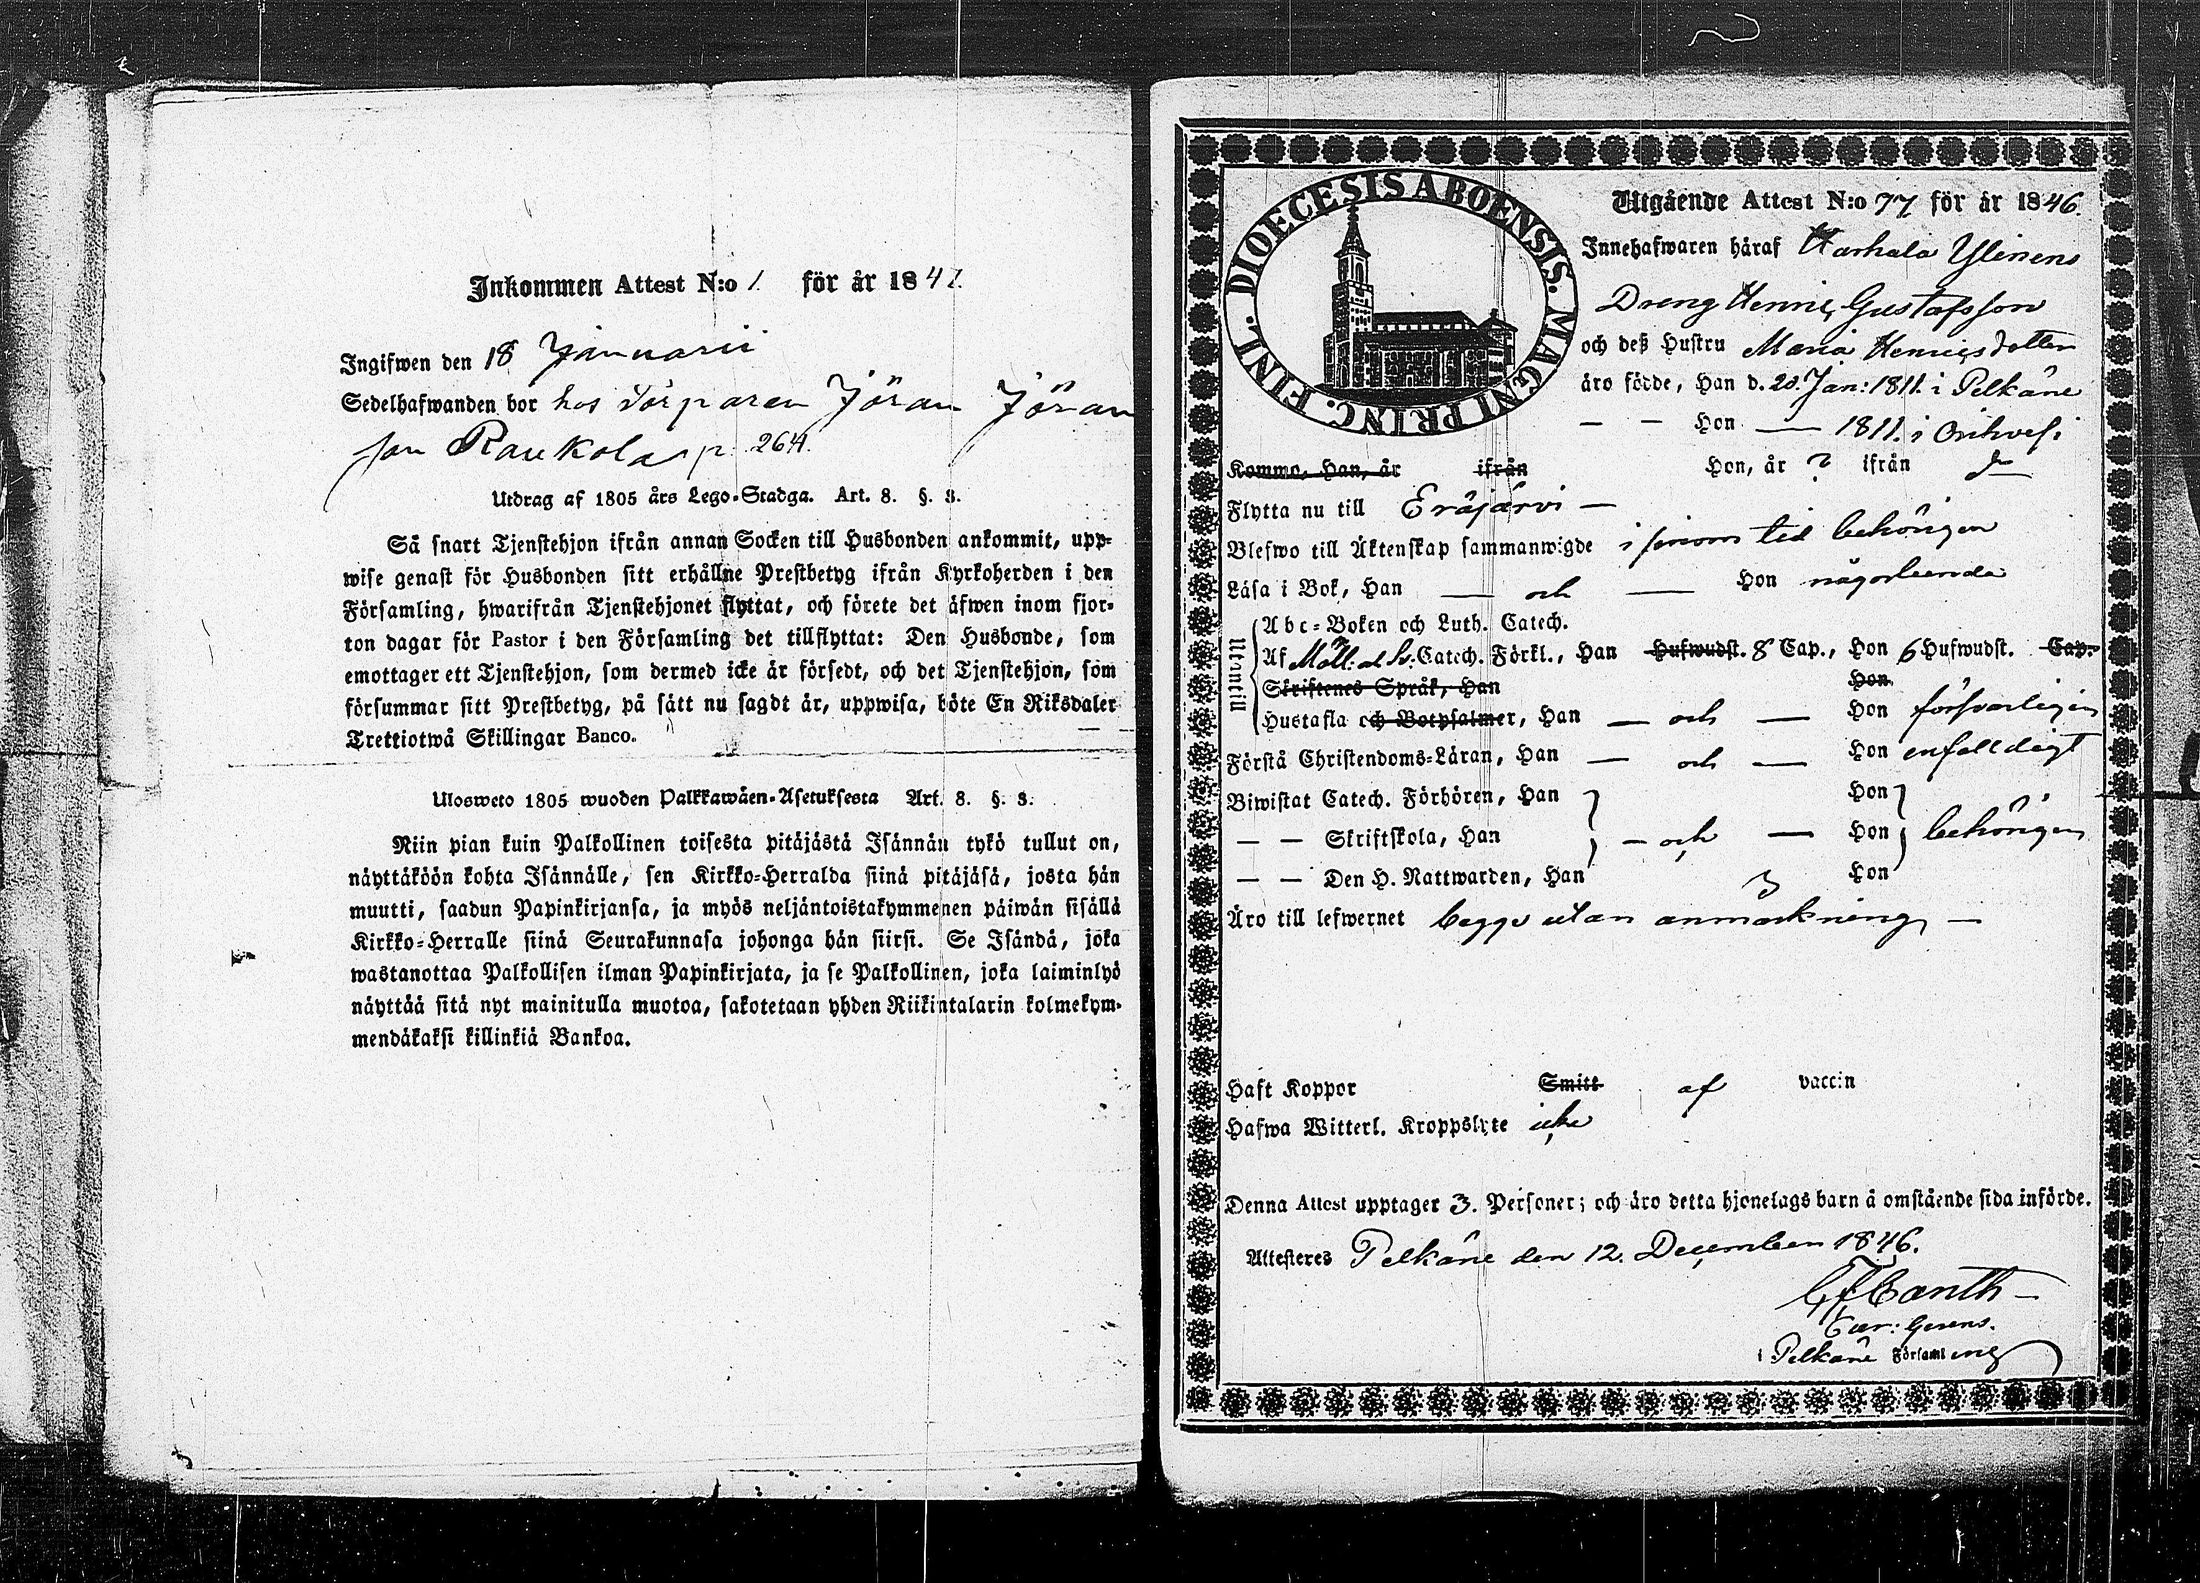 Inkommen Attest N:o 1. för år 1847.
Ingifwen den 18 Januarii
Sedelhafwanden bor hos Torparen Jöran Jöran
son Raukola p. 264.
Utdrag af 1805 års Lego-Stadga. Art. 8. §. 3.
Så snart Tjenstehjon ifrån annan Socken till Husbonden ankommit, upp-
wise genast för Husbonden sitt erhållne Prestbetyg ifrån Kyrkoherden i den
Församling, hwarifrån Tjenstehjonet flyttat, och förete det äfwen inom fjor-
ton dagar för Pastor i den Församling det tillflyttat: Den Husbonde, som
emottager ett Tjenstehjon, som dermed icke är försedt, och det Tjenstehjon, som
försummar sitt Prestbetyg, på sätt nu sagdt är, uppwisa, böte En Riksdaler
Trettiotwå Skillingar Banco.
Ulosweto 1805 wuoden Palkkawäen-Asetuksesta Art. 8. §. 3.
Niin pian kuin Palkollinen toisesta pitäjästä Isännän tykö tullut on,
näyttäköön kohta Isännälle, sen Kirkko-Herralda siinä pitäjäsä, josta hän
muutti, saadun Papinkirjansa, ja myös neljäntoistakymmenen päiwän sisällä
Kirkko-Herralle siinä Seurakunnasa johonga hän siirsi. Se Isändä, joka
wastanottaa Palkollisen ilman Papinkirjata, ja se Palkollinen, joka laiminlyö
näyttää sitä nyt mainitulla muotoa, sakotetaan yhden Riikintalarin kolmekym-
mendäkaksi killinkiä Bankoa.
DIOECESIS ABOENSIS. MAGNI PRINC. FINL.
Utgående Attest N:o 77 för år 1846.
Innehafwaren häraf Harhala Ylinens
Dreng Henric Gustafsson
och deß Hustru Maria Henricsdotter
äro födde, Han d. 20. Jan: 1811. i Pelkäne
— — Hon — 1811. i Orihvesi
Komma, Han, år ifrån Hon, år ? ifrån
Flytta nu till Eräjärvi —
Blefwo till Äktenskap sammanwigde i sinom tid behörigen
Läsa i Bok, Han — och — Hon någorlunda
Utantill
Abc-Boken och Luth. Catech.
Af Möll: al Sv: Catech. Förkl., Han Hufwudst. 8 Cap., Hon 6 Hufwudst. Cap.
Skriftenes Språk, Han Hon
Hustafla och Botpsalmer, Han — och — Hon försvarligen
Förstå Christendoms-Läran, Han — och — Hon enfalldigt
Biwistat Catech. Förhören, Han Hon
— — Skriftskola, Han — och — Hon behörigen
— — Den H. Nattwarden, Han Hon
Äro till lefwernet begge utan anmärkning —
Haft Koppor Smitt af vaccin
Hafwa Witterl. Kroppslyte icke
Denna Attest upptager 3. Personer; och äro detta hjonelags barn å omstående sida införde.
Attesteres Pelkäne den 12. December 1846.
Canth —
Cur: Gerens.
i Pelkäne Församling